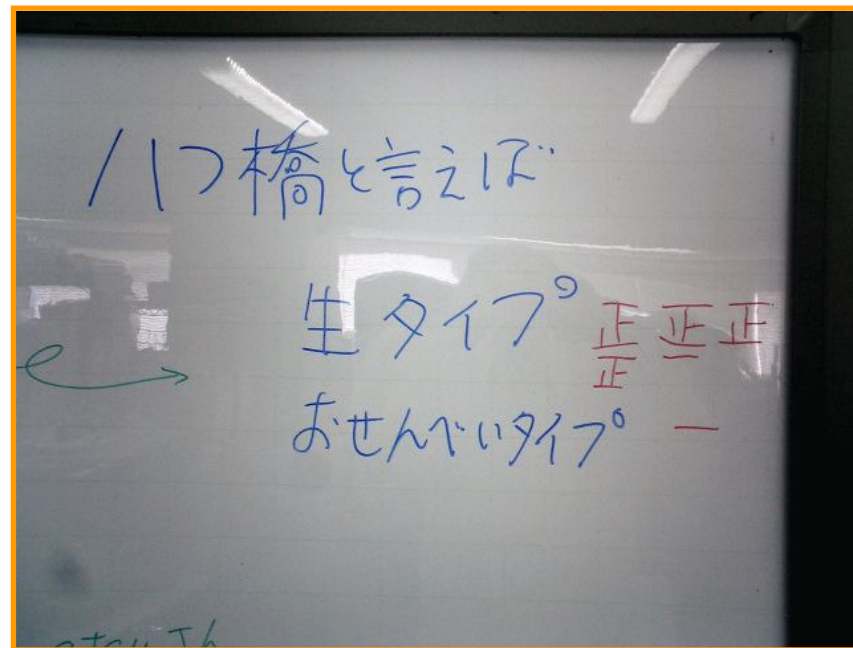 八つ橋と言えば
生タイプ 正 正 正
正 一
おせんべいタイプ 一